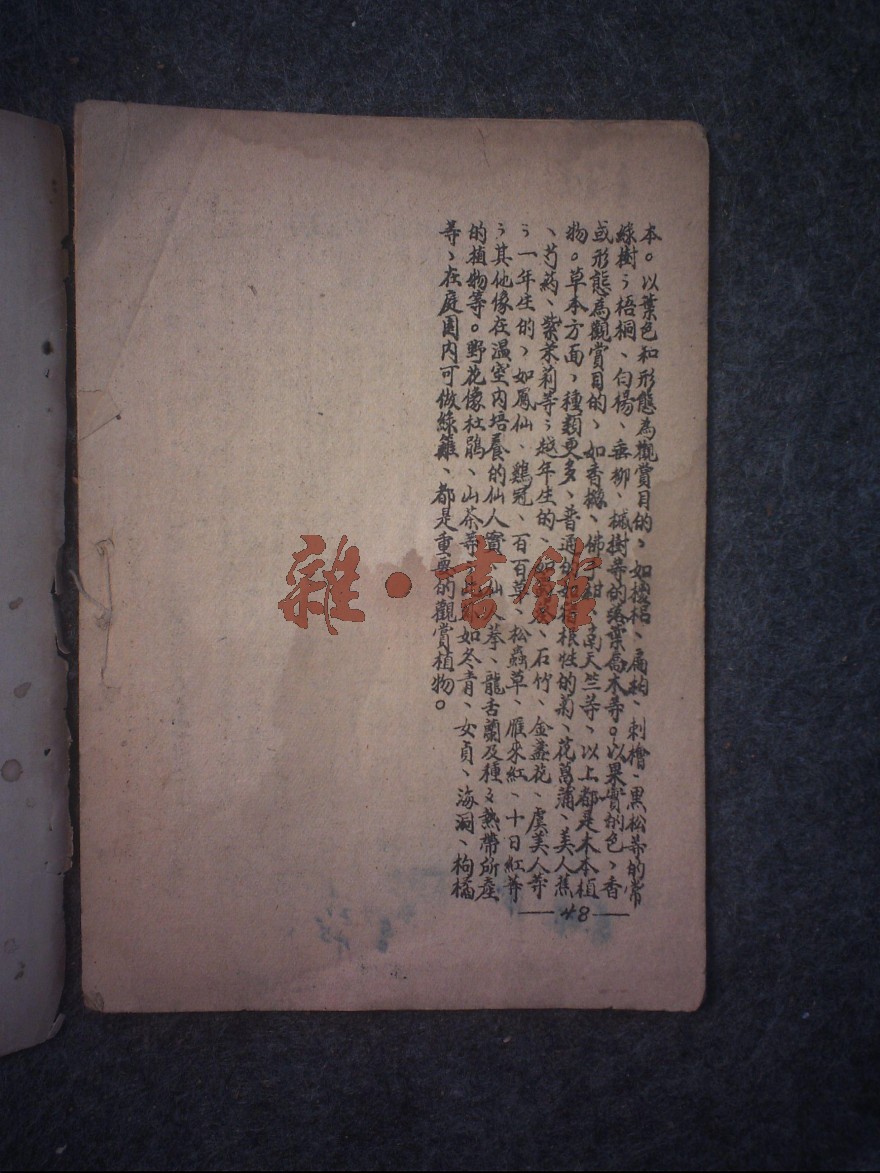 本。以葉色和形態為觀賞目的，如椶梠、扁柏、刺檜、黑松等的常
綠樹；梧桐、白楊、垂柳、槭樹等的落葉喬木等。以果實的色、香
或形態為觀賞目的，如香櫞、佛手柑、南天竺等，以上都是木本植
物。草本方面，種類更多、普通的如宿根性的菊、花菖蒲、美人蕉
、芍葯、紫茉莉等；越年生的、如 石竹、金盞花、虞美人等
；一年生的，如鳳仙、鷄冠、百百草、松蟲草、雁來紅、十日紅等
；其他像在温室內培養的仙人寳、仙人拳、龍舌蘭及種々熱帶所產
的植物等。野花像杜鵑、山茶等 如冬青、女貞、海洞、枸橘
等、在庭園內可做綠籬、都是重要的觀賞植物。
—48—
雜·書館